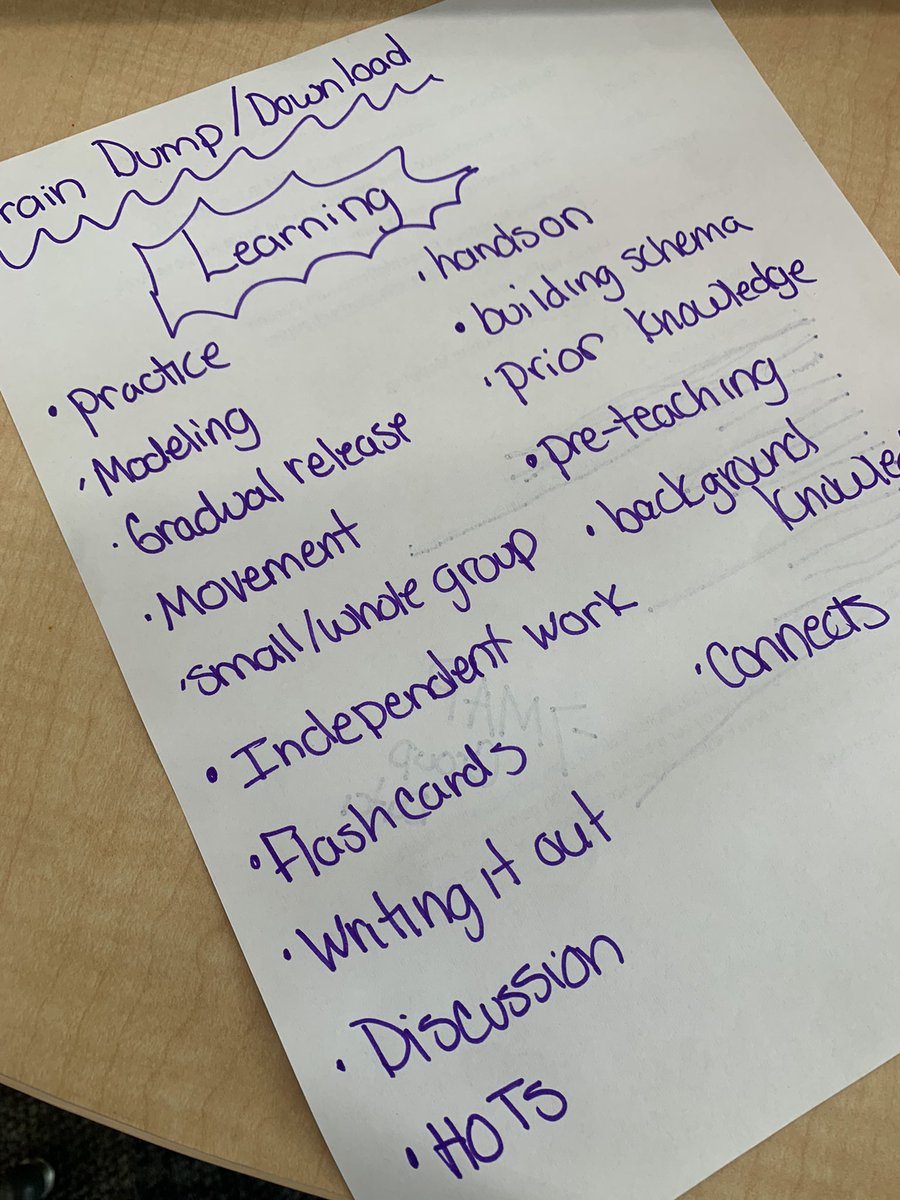 rain Dump/Download
Learning
• practice
• Modeling
• Gradual release
• Movement
• small/whole group
• Independent work
• Flashcards
• Writing it out
• Discussion
• HOTS
• hands on
• building schema
• prior knowledge
• pre-teaching
• background
knowled
• Connects